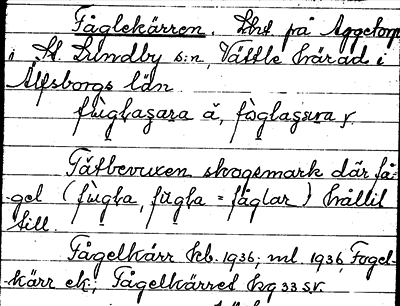 Fåglekärren. Lht på Aggetorp
i St. Lundby s:n, Vättle härad i
Älfsborgs län
fùglaşara ǎ, fòglaşura y.
Tätbevuxen skogsmark där få-
gel (fùgla, fŭgla = fåglar) hållit
till.
Fågelkärr hb. 1936; ml 1936, Fogel-
kärr ek.; Fågelkärret hg 33 s.v.